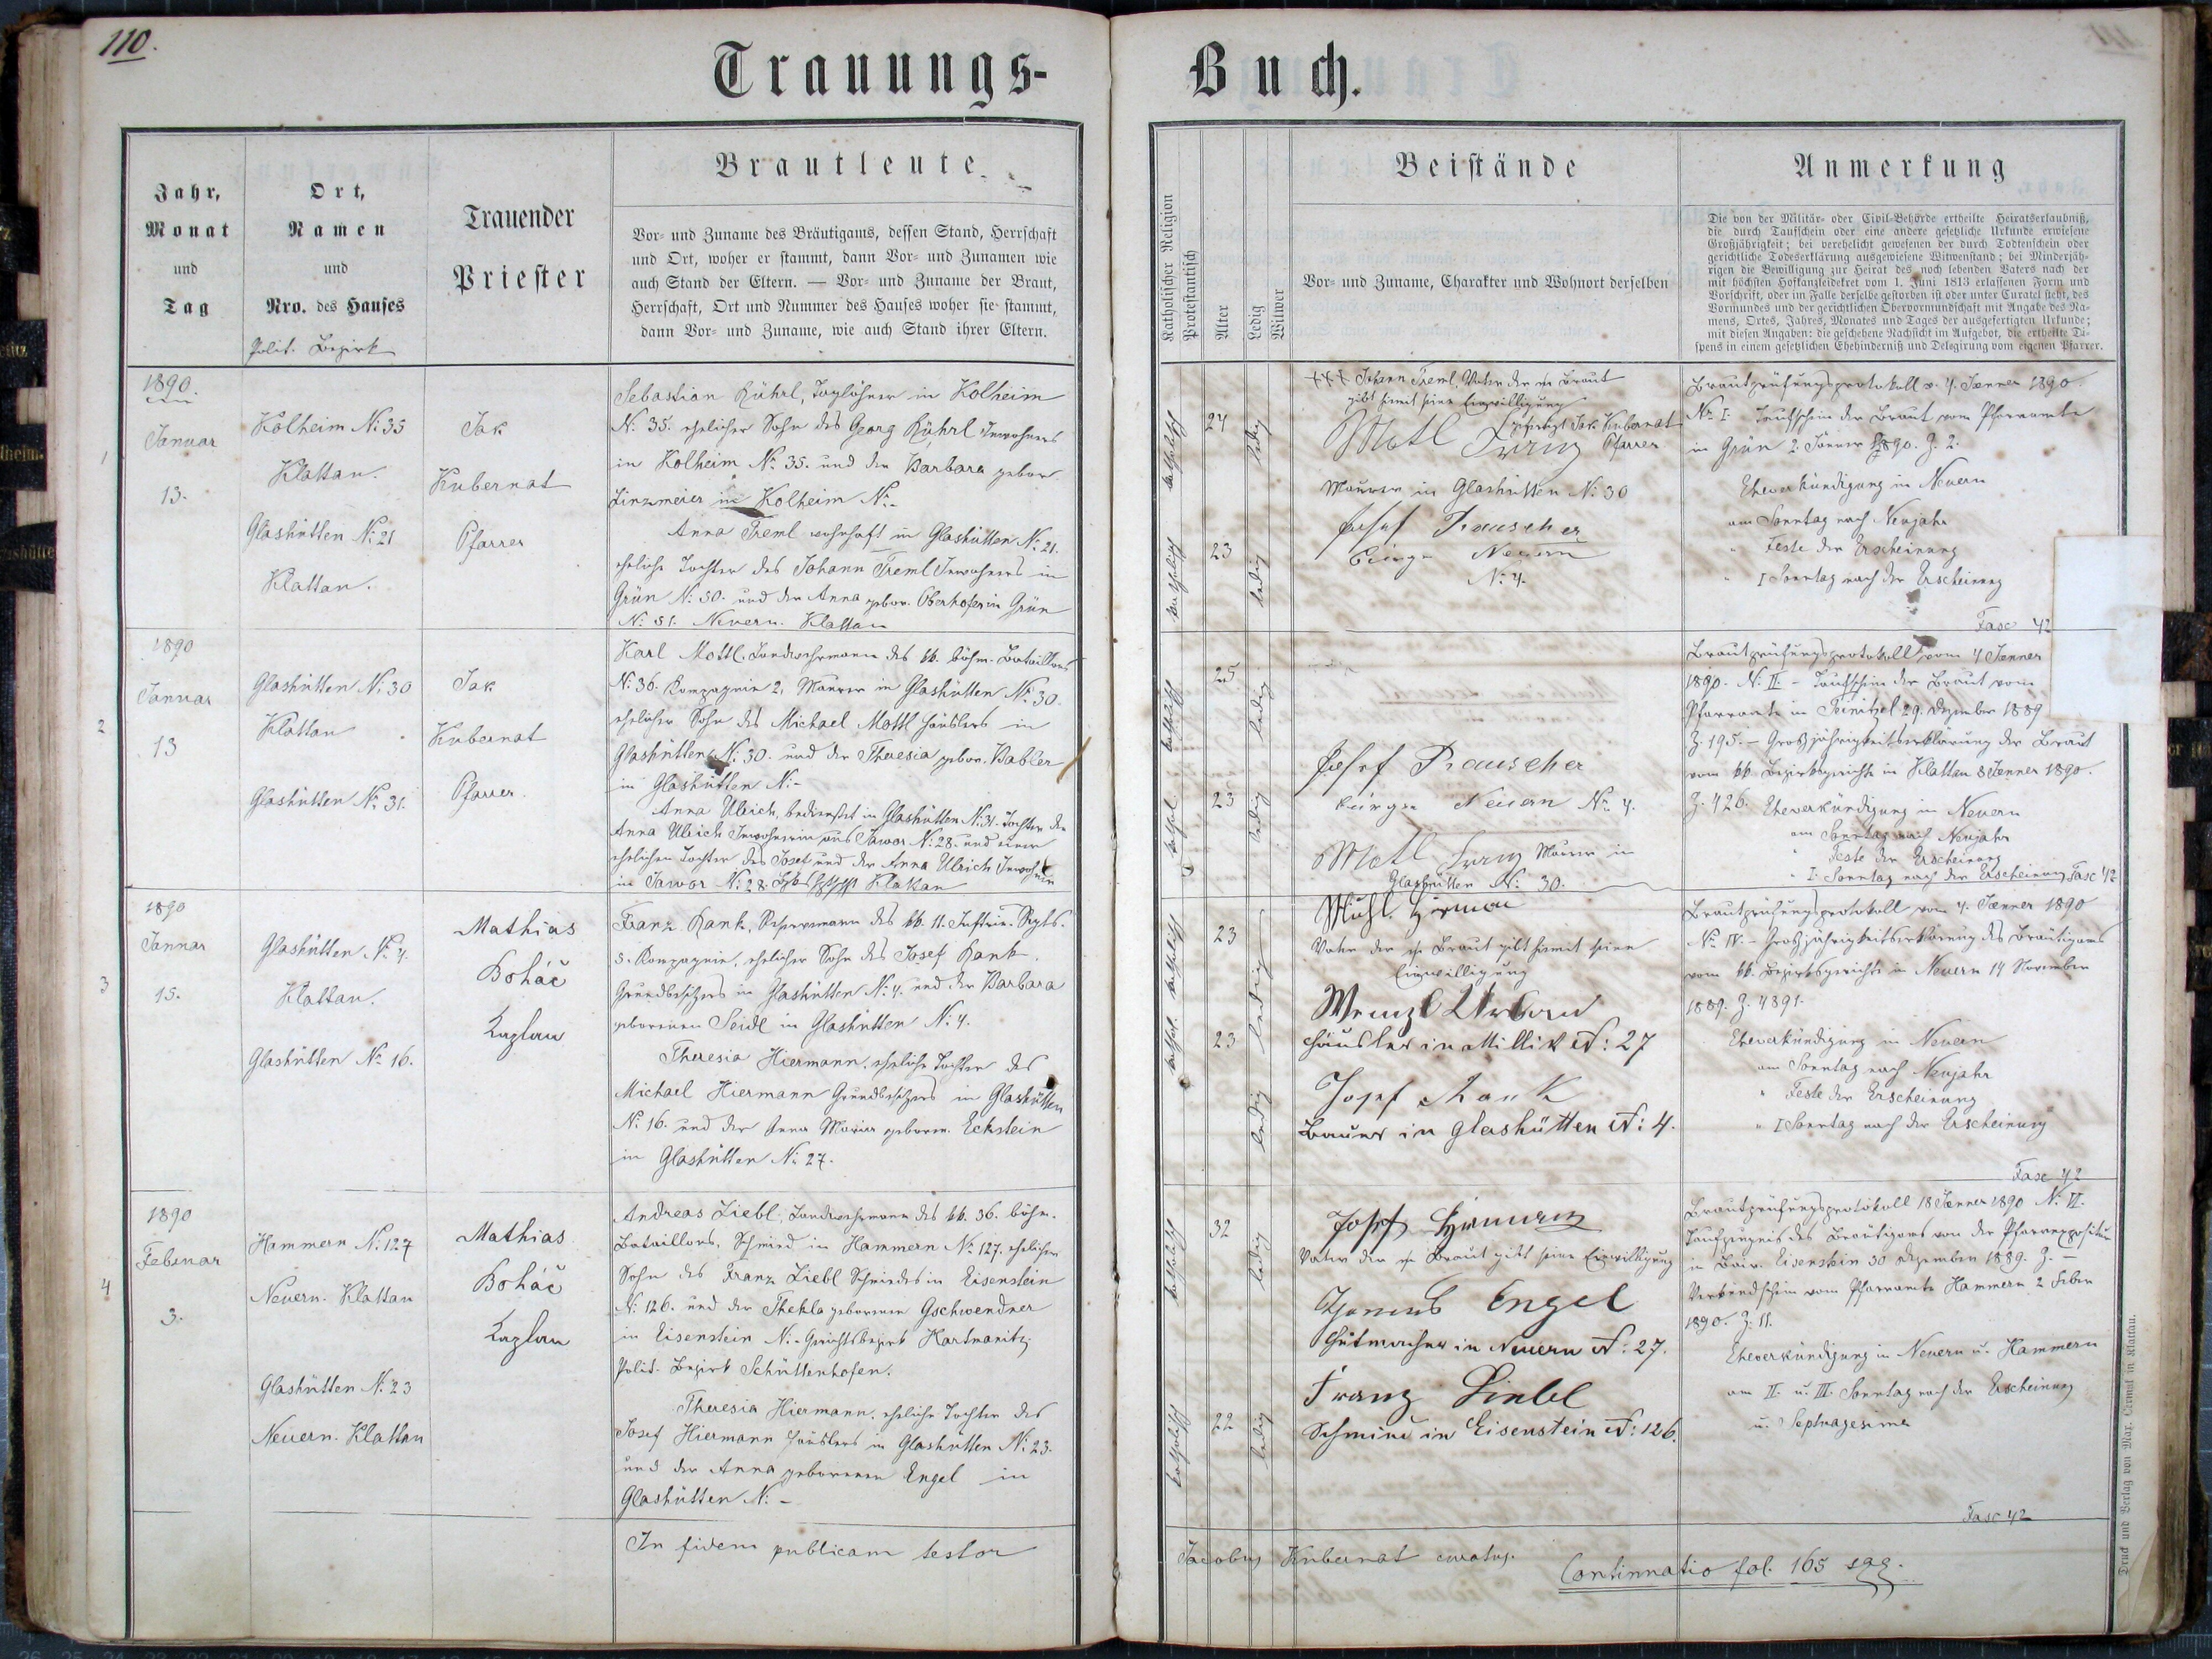 110.
Trauungs-
Buch.
Jahr,
Monat
und
Tag
Ort,
Namen
und
Nro. des Hauses
Polit. Bezirk
Trauender
Priester
Brautleute.
Vor- und Zuname des Bräutigams, dessen Stand, Herrschaft
und Ort, woher er stammt, dann Vor- und Zunamen wie
auch Stand der Eltern. — Vor- und Zuname der Braut,
Herrschaft, Ort und Nummer des Hauses woher sie stammt,
dann Vor- und Zuname, wie auch Stand ihrer Eltern.
Katholischer Religion
Protestantisch
Alter
Ledig
Witwer
Beistände
Vor- und Zuname, Charakter und Wohnort derselben
Anmerkung
Die von der Militär- oder Civil-Behörde ertheilte Heiratserlaubniß,
die durch Taufschein oder eine andere gesetzliche Urkunde erwiesene
Großjährigkeit; bei verehelicht gewesenen der durch Todtenschein oder
gerichtliche Todeserklärung ausgewiesene Witwenstand; bei Minderjäh-
rigen die Bewilligung zur Heirat des noch lebenden Vaters nach der
mit höchsten Hofkanzleidekret vom 1. Juni 1813 erlassenen Form und
Vorschrift, oder im Falle derselbe gestorben ist oder unter Curatel steht, des
Vormundes und der gerichtlichen Obervormundschaft mit Angabe des Na-
mens, Ortes, Jahres, Monates und Tages der ausgefertigten Urkunde;
mit diesen Angaben: die geschehene Nachsicht im Aufgebot, die ertheilte Di-
spens in einem gesetzlichen Ehehinderniß und Delegirung vom eigenen Pfarrer.
1
1890.
Januar
13.
Kolheim N: 35
Klattau.
Glashütten N: 21
Klattau.
Jak
Kubernat
Pfarrer
Sebastian Rührl, Taglöhner in Kolheim
N: 35. ehelicher Sohn des Georg Rührl Inwohners
in Kolheim N: 35. und der Barbara gebor.
Linzmeier in Kolheim N:-
Anna Treml wohnhaft in Glashütten N: 21.
eheliche Tochter des Johann Treml Inwohners in
Grün N: 50. und der Anna gebor. Oberhofer in Grün
N: 51. Neuern. Klattau
katholisch
24
ledig
katholisch
23
ledig
+++ Johann Treml, Vater der Braut
gibt hiemit seine Einwilligung
Jak Kubernat
Pfarrer
Motl Franz
Maurer in Glashütten N: 30
Josef Prauscher
Bürger Neuern
N: 4.
Brautprüfungsprotokoll v. 4. Jänner 1890.
N: I. Taufschein der Braut vom Pfarramte
in Grün 2. Jänner 1890. Z. 2.
Eheverkündigung in Neuern
am Sonntag nach Neujahr
" Feste der Erscheinung
" I Sonntag nach der Erscheinung
Fasc 42
2
1890
Januar
13
Glashütten N: 30
Klattau
Glashütten N: 31.
Jak
Kubernat
Pfarrer.
Karl Mottl, Landwehrmann des kk. böhm. Bataillons
N: 36. Kompagnie 2, Maurer in Glashütten N: 30.
ehelicher Sohn des Michael Mottl Häuslers in
Glashütten N: 30. und der Theresia gebor. Babler
in Glashütten N:-
Anna Ulrich, bedienstet in Glashütten N: 31. Tochter der
Anna Ulrich Inwohnerin aus Jawor N: 28. und einer
ehelichen Tochter des Josef und der Anna Ulrich Inwohner
in Jawor N: 28. Klattau
katholisch
25
ledig
kathol.
23
ledig
Josef Prauscher
Bürger Neuern N: 4.
Motl Franz Maurer in
Glashütten N: 30.
Brautprüfungsprotokoll vom 4 Jänner
1890. N: II - Taufschein der Braut vom
Pfarramte in 29. Dezember 1889
Z. 195. - Großjährigkeitserklärung der Braut
vom kk. Bezirksgericht in Klattau 8 Jänner 1890.
Z. 426. Eheverkündigung in Neuern
am Sonntag nach Neujahr
" Feste der Erscheinung
" I. Sonntag nach der Erscheinung Fasc 42
3
1890
Januar
15.
Glashütten N: 4.
Klattau.
Glashütten N: 16.
Mathias
Boháč
Kaplan
Franz Rank, Reservemann des kk. 11. Inftrie. Rgts.
5. Kompagnie, ehelicher Sohn des Josef Rank,
Grundbesitzers in Glashütten N: 4. und der Barbara
geborenen Seidl in Glashütten N: 4.
Theresia Hiermann, eheliche Tochter des
Michael Hiermann Grundbesitzers in Glashütten
N: 16. und der Anna Maria geboren. Eckstein
in Glashütten N: 27.
katholisch
23
ledig
kathol.
23
ledig
Vater der Braut gibt hiemit seine
Einwilligung
Wenzl Urban
Häusler in Millik N: 27
Josef Rank
Bauer in Glashütten N: 4.
Brautprüfungsprotokoll vom 4. Jänner 1890
N: IV. - Großjährigkeitserklärung des Bräutigams
vom kk. Bezirksgericht in Neuern 14 November
1889. Z. 4391.
Eheverkündigung in Neuern
am Sonntag nach Neujahr
" Feste der Erscheinung
" I Sonntag nach der Erscheinung
Fasc 42
4
1890
Februar
3.
Hammern N: 127
Neuern. Klattau
Glashütten N: 23
Neuern. Klattau
Mathias
Boháč
Kaplan
Andreas Liebl, Landwehrmann des kk. 36. böhm.
Bataillons, Schmied in Hammern N: 127. ehelicher
Sohn des Franz Liebl Schmiedes in Eisenstein
N: 126. und der Thekla geborenen Gschwendner
in Eisenstein N:- Gerichtsbezirk Hartmanitz,
Polit. Bezirk Schüttenhofen.
Theresia Hiermann, eheliche Tochter des
Josef Hiermann Häuslers in Glashütten N: 23.
und der Anna geborenen Engel in
Glashütten N: -
katholisch
32
ledig
katholisch
22
ledig
Josef Hirmann
Vater der Braut gibt seine Einwilligung
Engel
Hutmacher in Neuern N: 27.
Franz Liebl
Schmied in Eisenstein N: 126.
Brautprüfungsprotokoll 18 Jänner 1890 N: VI.
Taufzeugnis des Bräutigams von der Pfarrexpositur
in Bair. Eisenstein 30 Dezember 1889. Z.
Verkündschein vom Pfarramte Hammern 2 Feber
1890. Z: 11.
Eheverkündigung in Neuern u. Hammern
am II. u. III. Sonntag nach der Erscheinung
u. Septuagesima
Fasc 42
In fidem publicam testor
Jacobus Kubernat curatus.
Continuatio fol. 165 sqq.
Druck und Verlag von Mar. Cermak in Klattau.